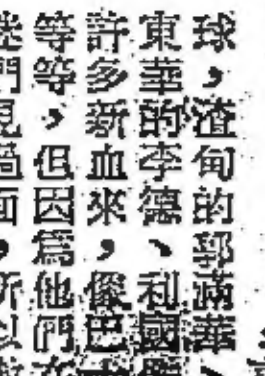 球，渣甸的郭滿華、
東華的李德、利國
許多新血來，像巴
等等，但因爲他們在
過面，所以